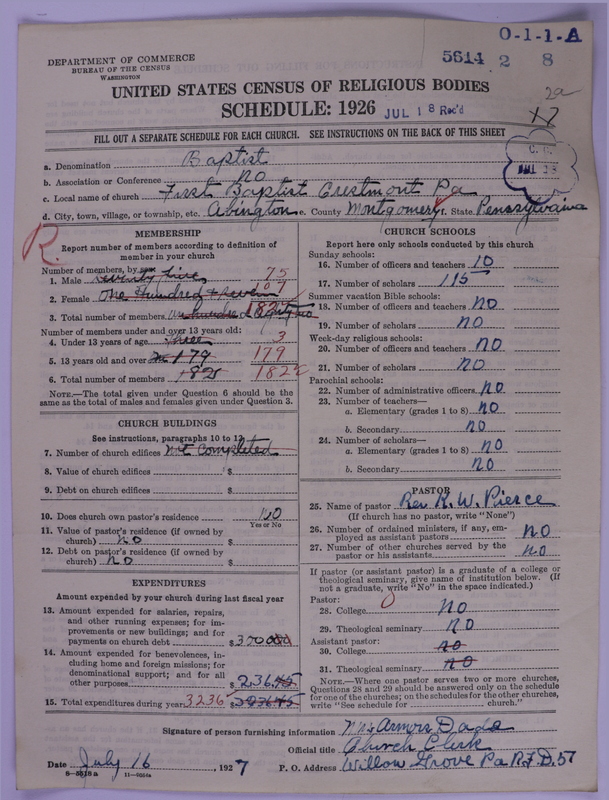 O-1-1-A
5614 2 8
DEPARTMENT OF COMMERCE
BUREAU OF THE CENSUS
WASHINGTON
UNITED STATES CENSUS OF RELIGIOUS BODIES
SCHEDULE: 1926 JUL 18 Rec'd
2a
FILL OUT A SEPARATE SCHEDULE FOR EACH CHURCH. SEE INSTRUCTIONS ON THE BACK OF THIS SHEET
a. Denomination Baptist
b. Association or Conference NO
c. Local name of church First Baptist Crestmont Pa
d. City, town, village, or township, etc. Abington e. County Montgomery f. State Pennsylvaina
R.
MEMBERSHIP
Report number of members according to definition of
member in your church
Number of members, by sex:
1. Male seventy five 75
2. Female One Hundred + seven 107
3. Total number of members 182
Number of members under and over 13 years old:
4. Under 13 years of age three 3
5. 13 years old and over 179 179
6. Total number of members 182 182
NOTE.—The total given under Question 6 should be the
same as the total of males and females given under Question 3.
CHURCH BUILDINGS
See instructions, paragraphs 10 to 12
7. Number of church edifices Not Completed
8. Value of church edifices $
9. Debt on church edifices $
10. Does church own pastor's residence NO
Yes or No
11. Value of pastor's residence (if owned by
church) NO $
12. Debt on pastor's residence (if owned by
church) NO $
EXPENDITURES
Amount expended by your church during last fiscal year
13. Amount expended for salaries, repairs,
and other running expenses; for im-
provements or new buildings; and for
payments on church debt $3000
14. Amount expended for benevolences, in-
cluding home and foreign missions; for
denominational support; and for all
other purposes $236.45
15. Total expenditures during year 3236 $3236.45
CHURCH SCHOOLS
Report here only schools conducted by this church
Sunday schools:
16. Number of officers and teachers 10
17. Number of scholars 115
Summer vacation Bible schools:
18. Number of officers and teachers NO
19. Number of scholars NO
Week-day religious schools:
20. Number of officers and teachers NO
21. Number of scholars NO
Parochial schools:
22. Number of administrative officers NO
23. Number of teachers—
a. Elementary (grades 1 to 8) NO
b. Secondary NO
24. Number of scholars—
a. Elementary (grades 1 to 8) NO
b. Secondary NO
PASTOR
25. Name of pastor Rev. R. W. Pierce
(If church has no pastor, write "None")
26. Number of ordained ministers, if any, em-
ployed as assistant pastors NO
27. Number of other churches served by the
pastor or his assistants NO
If pastor (or assistant pastor) is a graduate of a college or
theological seminary, give name of institution below. (If
not a graduate, write "No" in the space indicated.)
Pastor:
28. College NO
29. Theological seminary NO
Assistant pastor:
30. College NO
31. Theological seminary NO
NOTE.—Where one pastor serves two or more churches,
Questions 28 and 29 should be answered only on the schedule
for one of the churches; on the schedules for the other churches,
write "See schedule for church."
Signature of person furnishing information Armor Dade
Official title Church Clerk
Date July 16, 1927 P. O. Address Willow Grove Pa R.F.D. 57
8—5518 a 11—9054a